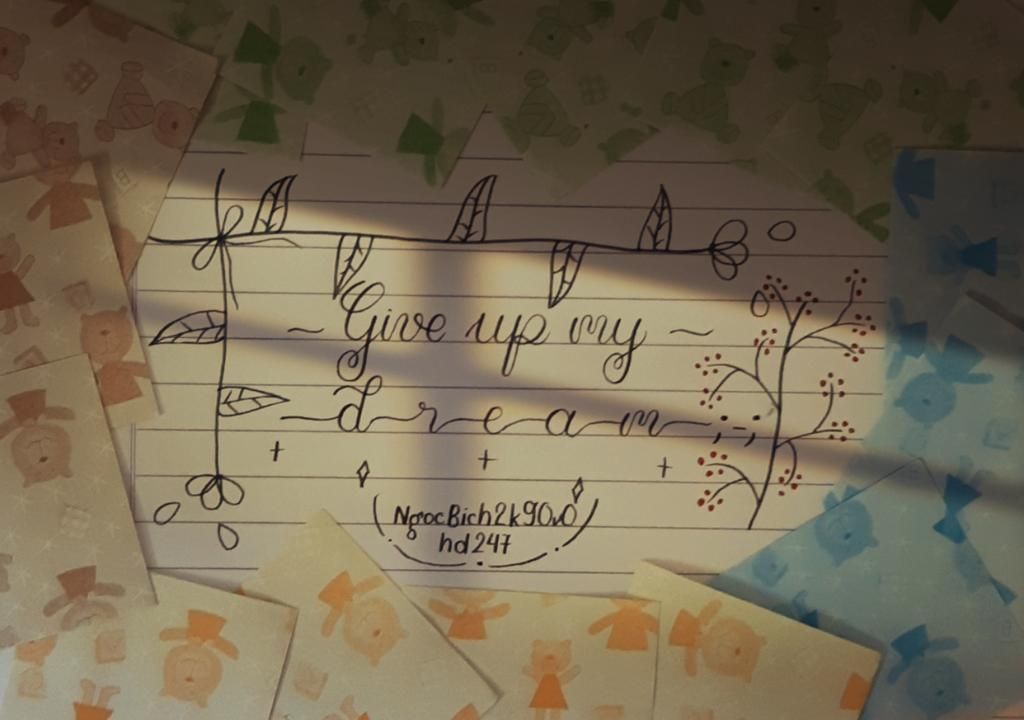 ~ Give up my ~
dream ;-;
NgocBich2k9OvO
hd247